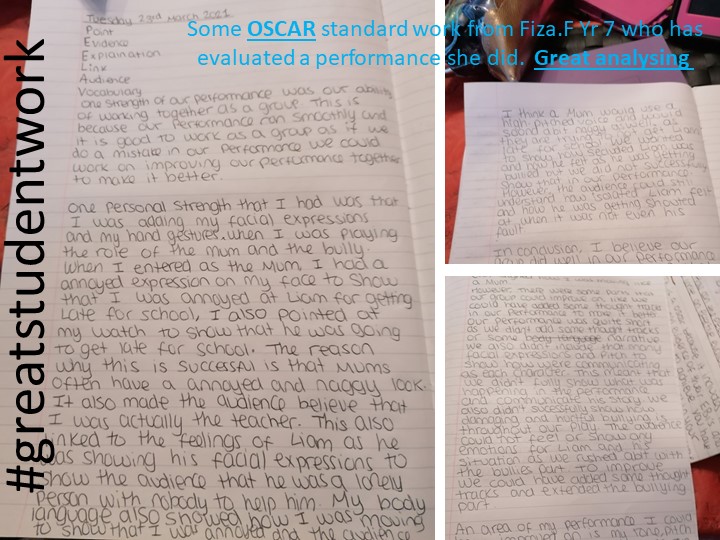 #greatstudentwork
Some OSCAR standard work from Fiza.F Yr 7 who has
evaluated a performance she did. Great analysing
Tuesday 23rd March 2021
Point
Evidence
Explaination
Link
Audience
Vocabulary
One strength of our performance was our ability
of working together as a group. This is
because our performance ran smoothly and
it is good to work as a group as if we
do a mistake in our performance we could
work on improving our performance together
to make it better.
One personal strength that I had was that
I was adding my facial expressions
and my hand gestures. when I was playing
the role of the mum and the bully.
When I entered as the Mum, I had a
annoyed expression on my face to show
that I was annoyed at Liam for getting
Late for school, I also pointed at
my watch to show that he was going
to get late for school. The reason
why this is successful is that mums
often have a annoyed and naggy look.
It also made the audience believe that
I was actually the teacher. This also
linked to the feelings of Liam as he
was showing his facial expressions to
show the audience that he was a lonely
person with nobody to help him. My body
language also showed how I was moving
to show that I was annoyed and the audience
I think a Mum would use a
high pitched voice and would
sound abit naggy as well as
they are trying to get Liam
late for school. We wanted
to show how isolated Liam was
and how he felt as he was getting
bullied but we did not successfully
show that in our performance.
However, the audience could still
understand how isolated Liam felt
and how he was getting shouted
at when it was not even his
fault.
In conclusion, I believe our
did well in our performance
a Mum.
However there were some parts that
our group could improve on like we
could have added some thought tracks
in our performance to make it better.
Our performance was quite short
as we didnt add some thought tracks
or some narrative
we also did not add that many
facial expressions and pitch to
show how we were communicating
as each character. This meant that
we didn't fully show what was
happening in the performance
and communicate his story. We
also didn't sucessfully show how
damaging and hurtful bullying is
throughout our play. The audience
could not feel or show any
emotions for Liam and his
situation as we rushed abit with
the bullies part. To improve
we could have added some thought
tracks and extended the bullying
part.
An area of my performance I could
improved on is my tone, pitch